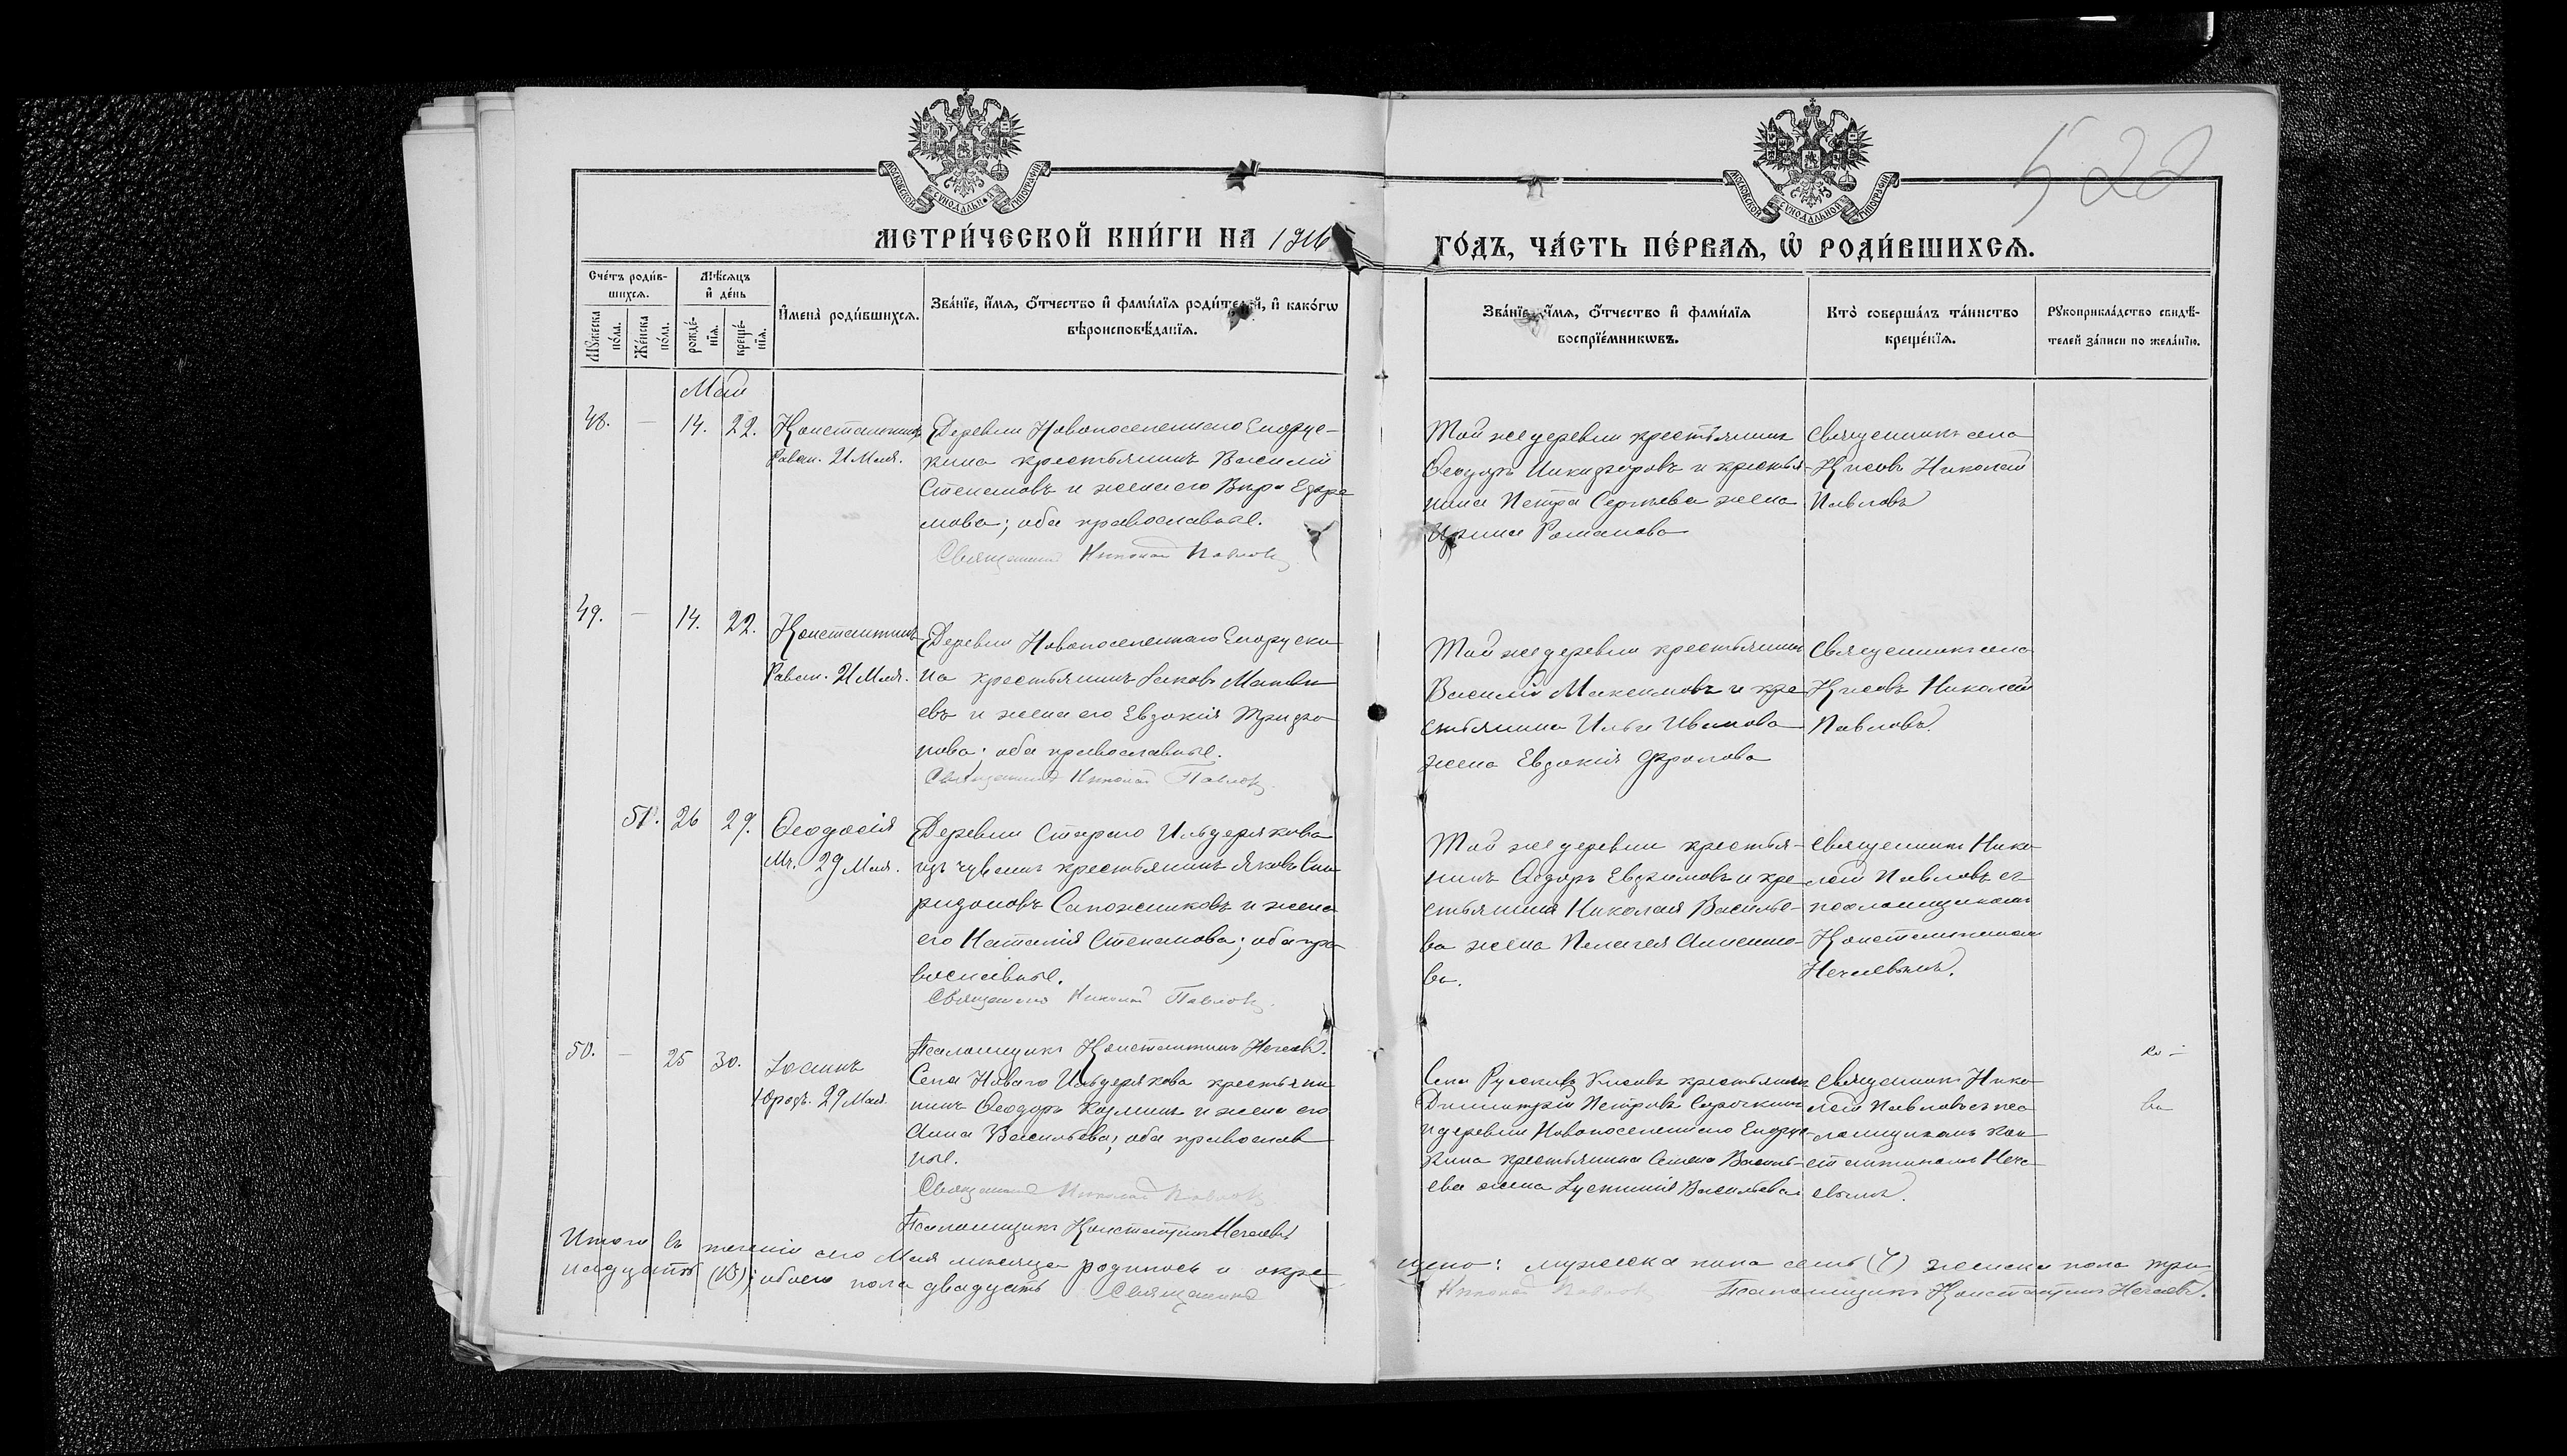 522
МОСКОВСКОЙ СѴНОДАЛЬНОЙ ТИПОГРАФІИ
МОСКОВСКОЙ СѴНОДАЛЬНОЙ ТИПОГРАФІИ
МЕТРИ́ЧЕСКОЙ КНИ́ГИ НА 1916
ГО́ДЪ, ЧА́СТЬ ПЕ́РВАѦ, Ѡ҆ РОДИ́ВШИХСѦ.
Сче́тъ роди́в-
шихсѧ.
Мѣ́сѧцъ
и҆ де́нь
Мꙋ́жеска
по́ла.
Же́нска
по́ла.
рожде́-
нїѧ.
креще́-
нїѧ.
И҆мена̀ роди́вшихсѧ.
Зва́нїе, и҆́мѧ, ѻ҆́тчество и҆ фами́лїѧ роди́телей, и҆ како́гѡ
вѣроисповѣ́данїѧ.
Зва́нїе, и҆́мѧ, ѻ҆́тчество и҆ фами́лїѧ
воспрїе́мникѡвъ.
Кто̀ соверша́лъ та́инство
креще́нїѧ.
Рꙋкоприкла́дство свидѣ́-
телей за́писи по жела́нїю.
Май
48. — 14. 22. Константинъ
Равноап. 21 Мая.
Деревни Новопоселеннаго Енорус-
кина крестьянинъ Василій
Степановъ и жена его Вѣра Ефре
мова; оба православные.
Священникъ Николай Павловъ
Той же деревни крестьянинъ
Ѳеодоръ Никифоровъ и крестья-
нина Петра Сергѣева жена
Ирина Романова
Священникъ села
Кисовъ Николай
Павловъ
49. — 14. 22. Константинъ
Равноап. 21 Мая.
Деревни Новопоселеннаго Еноруски
на крестьянинъ Іаковъ Матвѣ
евъ и жена его Евдокія Трифо
нова; оба православные.
Священникъ Николай Павловъ
Той же деревни крестьянинъ
Василій Максимовъ и кре
стьянина Ильи Иванова
жена Евдокія Фролова
Священникъ села
Кисовъ Николай
Павловъ.
51. 26 29. Ѳеодосія
Мч. 29 Мая.
Деревни Стараго Ильдерякова
изъ чувашъ крестьянинъ Яковъ Спи
ридоновъ Сапожниковъ и жена
его Наталія Степанова; оба пра
вославные.
Священникъ Николай Павловъ
Псаломщикъ Константинъ Нечаевъ.
Той же деревни крестья-
нинъ Ѳеодоръ Евдокимовъ и кре
стьянина Николая Василье-
ва жена Пелагея
ва.
Священникъ Нико-
лай Павловъ съ
псаломщикомъ
Константиномъ
Нечаевымъ.
50. — 25 30. Іоаннъ
Юрод. 29 Мая.
Села Новаго Ильдерякова крестьяни
нинъ Ѳеодоръ Козминъ и жена его
Анна Васильева; оба православ
ные.
Священникъ Николай Павловъ
Псаломщикъ Константинъ Нечаевъ
Села Русскихъ Кисовъ крестьянинъ
Димитрій Петровъ
и деревни Новопоселеннаго Енорус-
кина крестьянина Семена Василь-
ева жена Іустинія Васильева
Священникъ Нико-
лай Павловъ съ пса
ломщикомъ Кон
стантиномъ Неча-
евымъ.
Итого въ теченіи сего Мая мѣсяца родилось и окре-
щено: мужеска пола семь (7) женска пола три-
надцать (13); обоего пола двадцать Священникъ
Николай Павловъ Псаломщикъ Константинъ Нечаевъ.